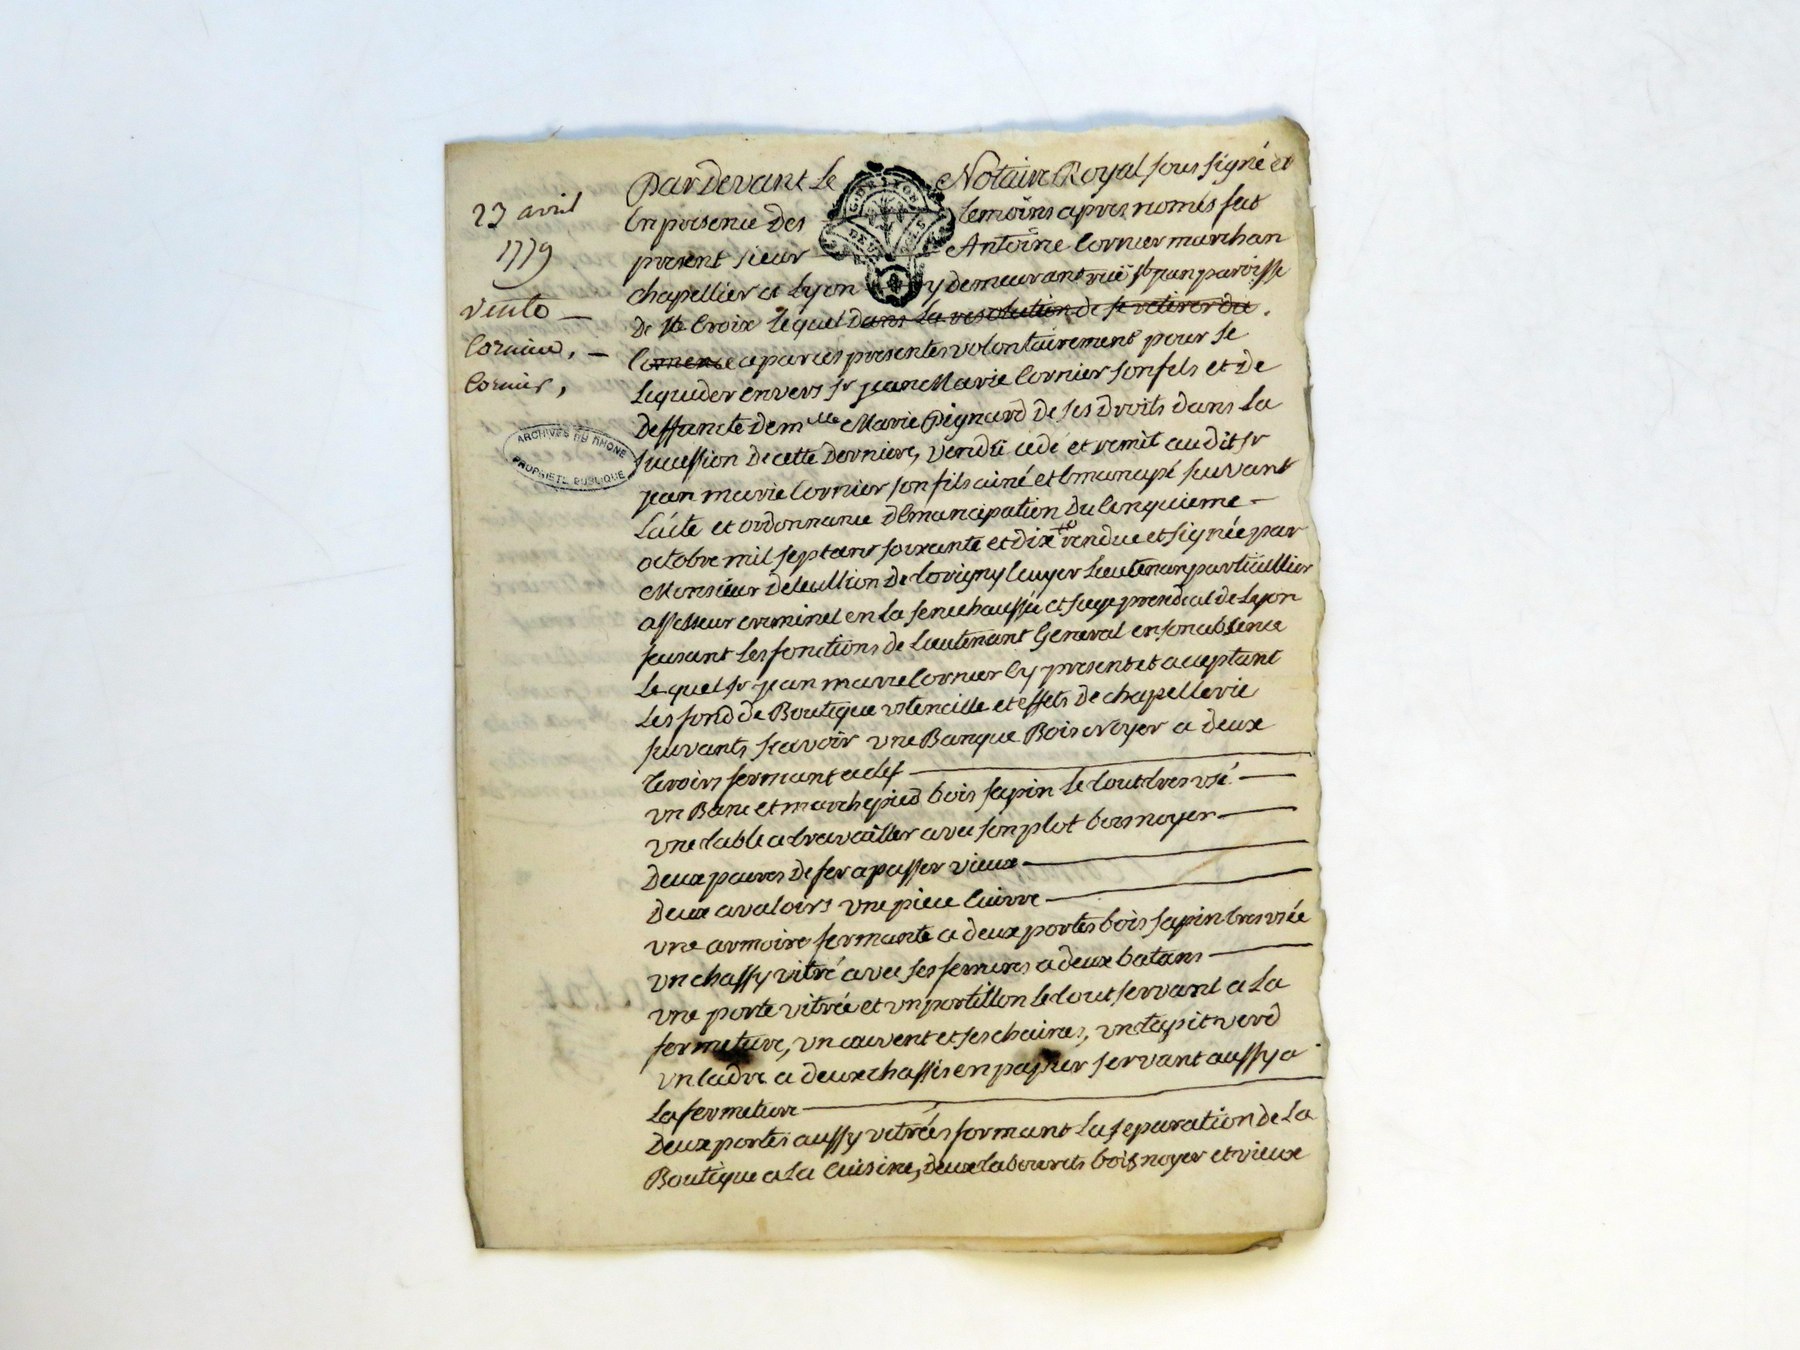 23 avril
1779
vente
Cornier,
Cornier,
ARCHIVES DU RHONE
PROPRIETE PUBLIQUE
Pardevant Le Notaire Royal sous signé et
En presence des temoins apres només fut
present sieur Antoine Cornier marchan
chapellier a Lyon y demeurant rüe St jean paroisse
De Ste Croix Lequel dans La resolution de se retirer du
Comerce a par ces presentes volontairement pour se
Liquider envers sr jean Marie Cornier son fils et de
Deffuncte demlle Marie Pignard de ses Droits dans La
sucession De cette Derniere, vendu cedé et remit au dit sr
jean marie Cornier son fils ainé et Emancipé suivant
L'acte et ordonnance d'Emancipation du Cinquieme
octobre mil sept cent soixante et dix rendue et signée par
Monsieur De Cuyer Lieutenant particullier
assesseur criminel en La senechaussée et siege presidial de Lyon
faisant Les fonctions de Lieutenant General en son absence
Le quel sr jean marie Cornier Cy present et aceptant
Les fond de Boutique utencille et effets De chapellerie
suivants scavoir une Banque Bois Noyer a deux
tiroirs fermant a clef
un Banc et marchepied bois sapin Le tout tres usé
une table a travailler avec son plot bois noyer
Deux paires de fer a passer vieux
Deux avaloirs une piece Cuivre
une armoire fermante a deux portes bois sapin tres usée
un chassy vitré avec ses ferrures a deux batans
une porte vitrée et un portillon le tout servant a La
fermeture, un auvent et ses chaines, un tapit verd
un Cadre a deux chassis en papier servant aussy a
La fermeture
Deux portes aussy vitrées formant La separation de La
Boutique a La Cuisine, deux tabourets bois noyer et vieux